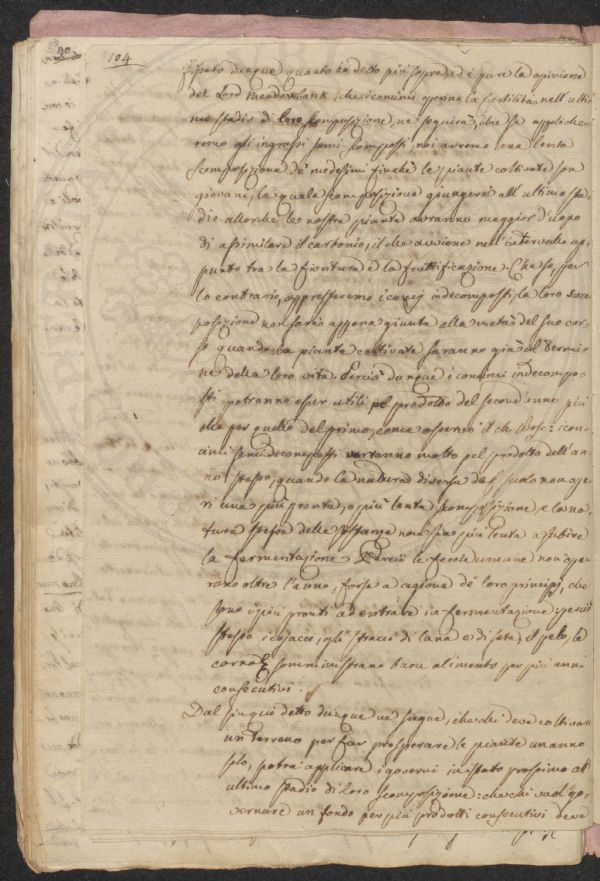 104
fissato dunque quanto ho detto più sopra, ed è pure la opinione
del Lord Meadowbank, che i concimi operino la fertilità nell' ulti
mo stadio di loro scomposizione, ne seguirà, che se appliche
remo gli ingrassi semi-scomposti, noi avremo una lenta
scomposizione de' medesimi finchè le piante coltivate son
giovani, la quale scomposizione giungerà all' ultimo sta
dio allorchè le nostre piante avranno maggior d'uopo
di assimilare il carbonio, il che avviene nell' intervallo ap
punto tra la fioritura e la fruttificazione. Che se, per
lo contrario, appresteremo i concj indecomposti, la loro scom
posizione non sarà appena giunta alla metà del suo cor
so quando le piante coltivate saranno già al termi
ne della loro vita. Perciò dunque i concimi indecompo
sti potranno esser utili pel prodotto del second' anno più
che per quello del primo, come osservò il : i con
cimi semidecomposti varranno molto pel prodotto dell' an
no stesso, quando la natura diversa del suolo non ope
ri una più pronta, o più lenta scomposizione, e la na
tura stessa delle sostanze non sia più lenta a subire
la fermentazione. Perciò le feccie umane non ope
rano oltre l'anno, forse a cagione de' loro principj, che
sono i più pronti ad entrare in fermentazione: perciò
stesso i , gli stracci di lana e di seta, il pelo, le
corna somministrano buon alimento per più anni
consecutivi.
Dal fin quì detto dunque ne siegue, che chi deve coltivare
un terreno per far prosperare le piante un anno
solo, potrà applicare i governi in istato prossimo all'
ultimo stadio di loro scomposizione: che chi vuol go
vernare un fondo per più prodotti consecutivi deve